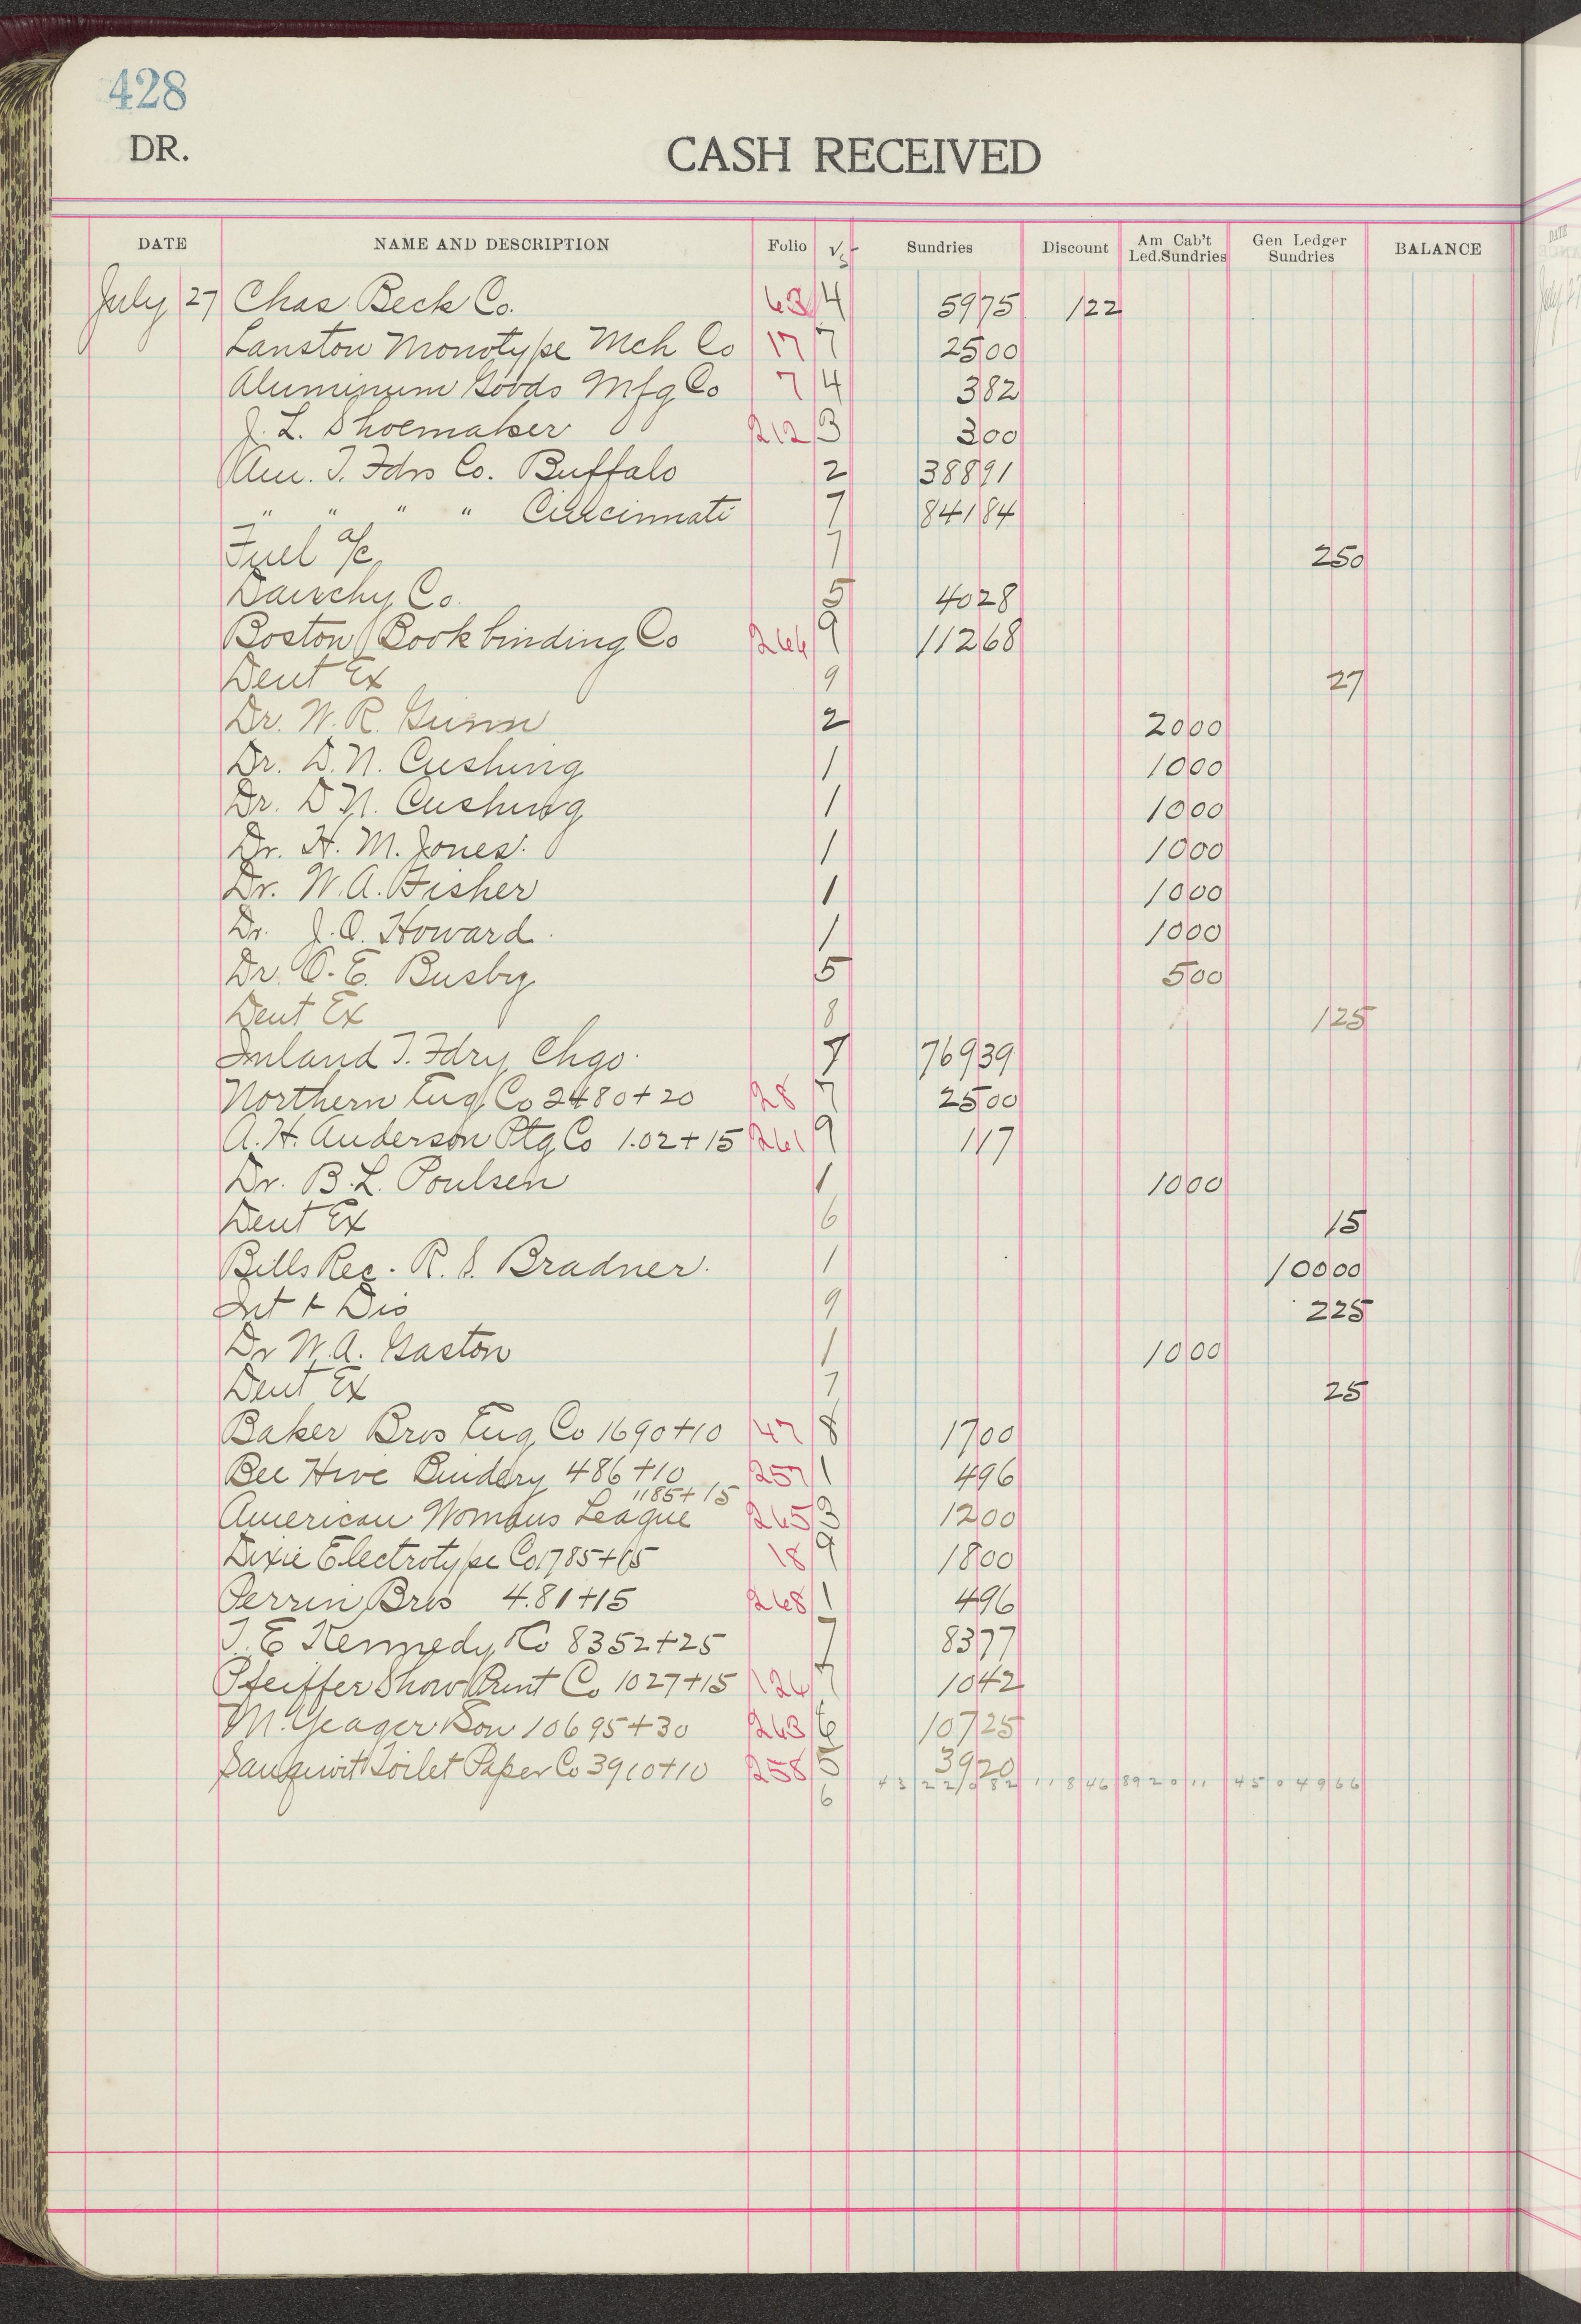 428
DR. CASH RECEIVED
DATE NAME AND DESCRIPTION Folio Sundries Discount Am Cab't Led.Sundries Gen Ledger Sundries BALANCE
July 27 Chas Beck Co. 63 4 5975 122
Lanston Monotype Mch Co 17 7 2500
Aluminum Goods Mfg Co 7 4 382
J. L. Shoemaker 212 3 300
Am. T. Fdrs Co. Buffalo 2 38891
" " " " Cincinnati 7 84184
Fuel a/c 7 250
Dauchy Co. 5 4028
Boston Bookbinding Co 244 9 11268
Dent Ex 9 27
Dr. W. R. Gunn 2 2000
Dr. D. N. Cushing 1 1000
Dr. D N. Cushing 1 1000
Dr. H. M. Jones. 1 1000
Dr. W. A. Fisher 1 1000
Dr. J. O. Howard. 1 1000
Dr. O. E. Busby 5 500
Dent Ex 8 125
Inland T. Fdry Chgo. 7 76939
Northern Eng Co 2480+20 28 7 2500
A. H. Anderson Ptg Co 1.02+15 261 9 117
Dr. B. L. Poulsen 1 1000
Dent Ex 6 15
Bills Rec. R. S. Bradner. 1 10000
Int & Dis 9 225
Dr W. A. Gaston 1 1000
Dent Ex 7 25
Baker Bros Eng Co 1690+10 47 8 1700
Bee Hive Bindery 486+10 257 1 496
American Womans League 1185+15 265 3 1200
Dixie Electrotype Co 1785+15 18 9 1800
Perrin Bros 4.81+15 268 1 496
T. E Kennedy Co 8352+25 7 8377
Pfeiffer Show Print Co 1027+15 126 7 1042
M. Yeager Son 10695+30 263 6 10725
Toilet Paper Co 3910+10 258 5 3920
6 43 22 10 82 11846 892011 45 0 4966